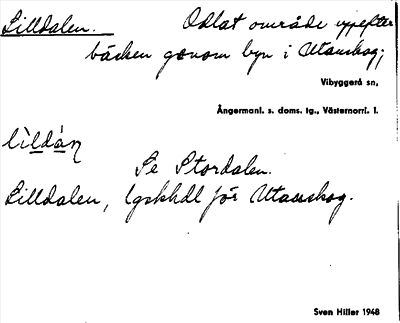 Lilldalen. Odlat område uppefter
bäcken genom byn i Utanskog;
Vibyggerå sn,
Ångermanl. s. doms. tg., Västernorrl. l.
lìldán
Se Stordalen.
Lilldalen, lgskhdl för Utanskog.
Sven Hiller 1948